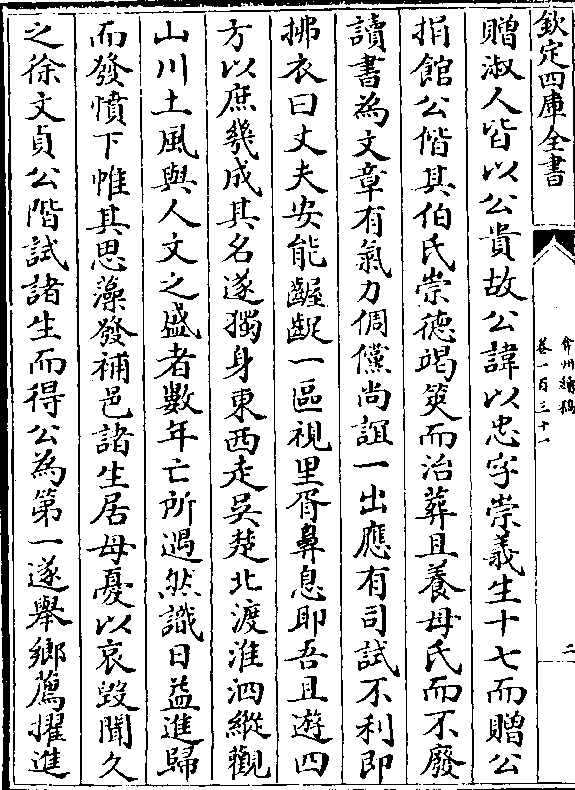 欽定四庫全書
弇州續稿
卷一百三十一
二
贈淑人皆以公貴故公諱以忠字崇義生十七而贈公
捐館公偕其伯氏崇德竭筴而治葬且養母氏而不廢
讀書為文章有氣力倜儻尚誼一出應有司試不利即
拂衣曰丈夫安能齷齪一區視里胥鼻息即吾且遊四
方以庶幾成其名遂獨身東西走吳楚北渡淮泗縱觀
山川土風與人文之盛者數年亡所遇然識日益進歸
而發憤下帷其思藻發補邑諸生居母憂以哀毀聞久
之徐文貞公階試諸生而得公為第一遂舉鄉薦擢進